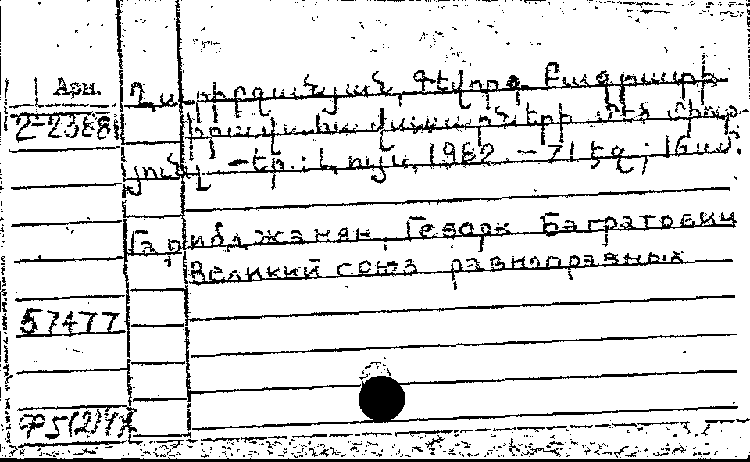 Арм.
2-2388
Ղարիբջանյան, Գևորգ Բագրատի
իրավահավասարների մեծ միու-
յունը - Եր.: Լույս, 1982. - 71 էջ; 16սմ.
Гарибджанян, Геворк Багратович
Великий союз равноправных
57477